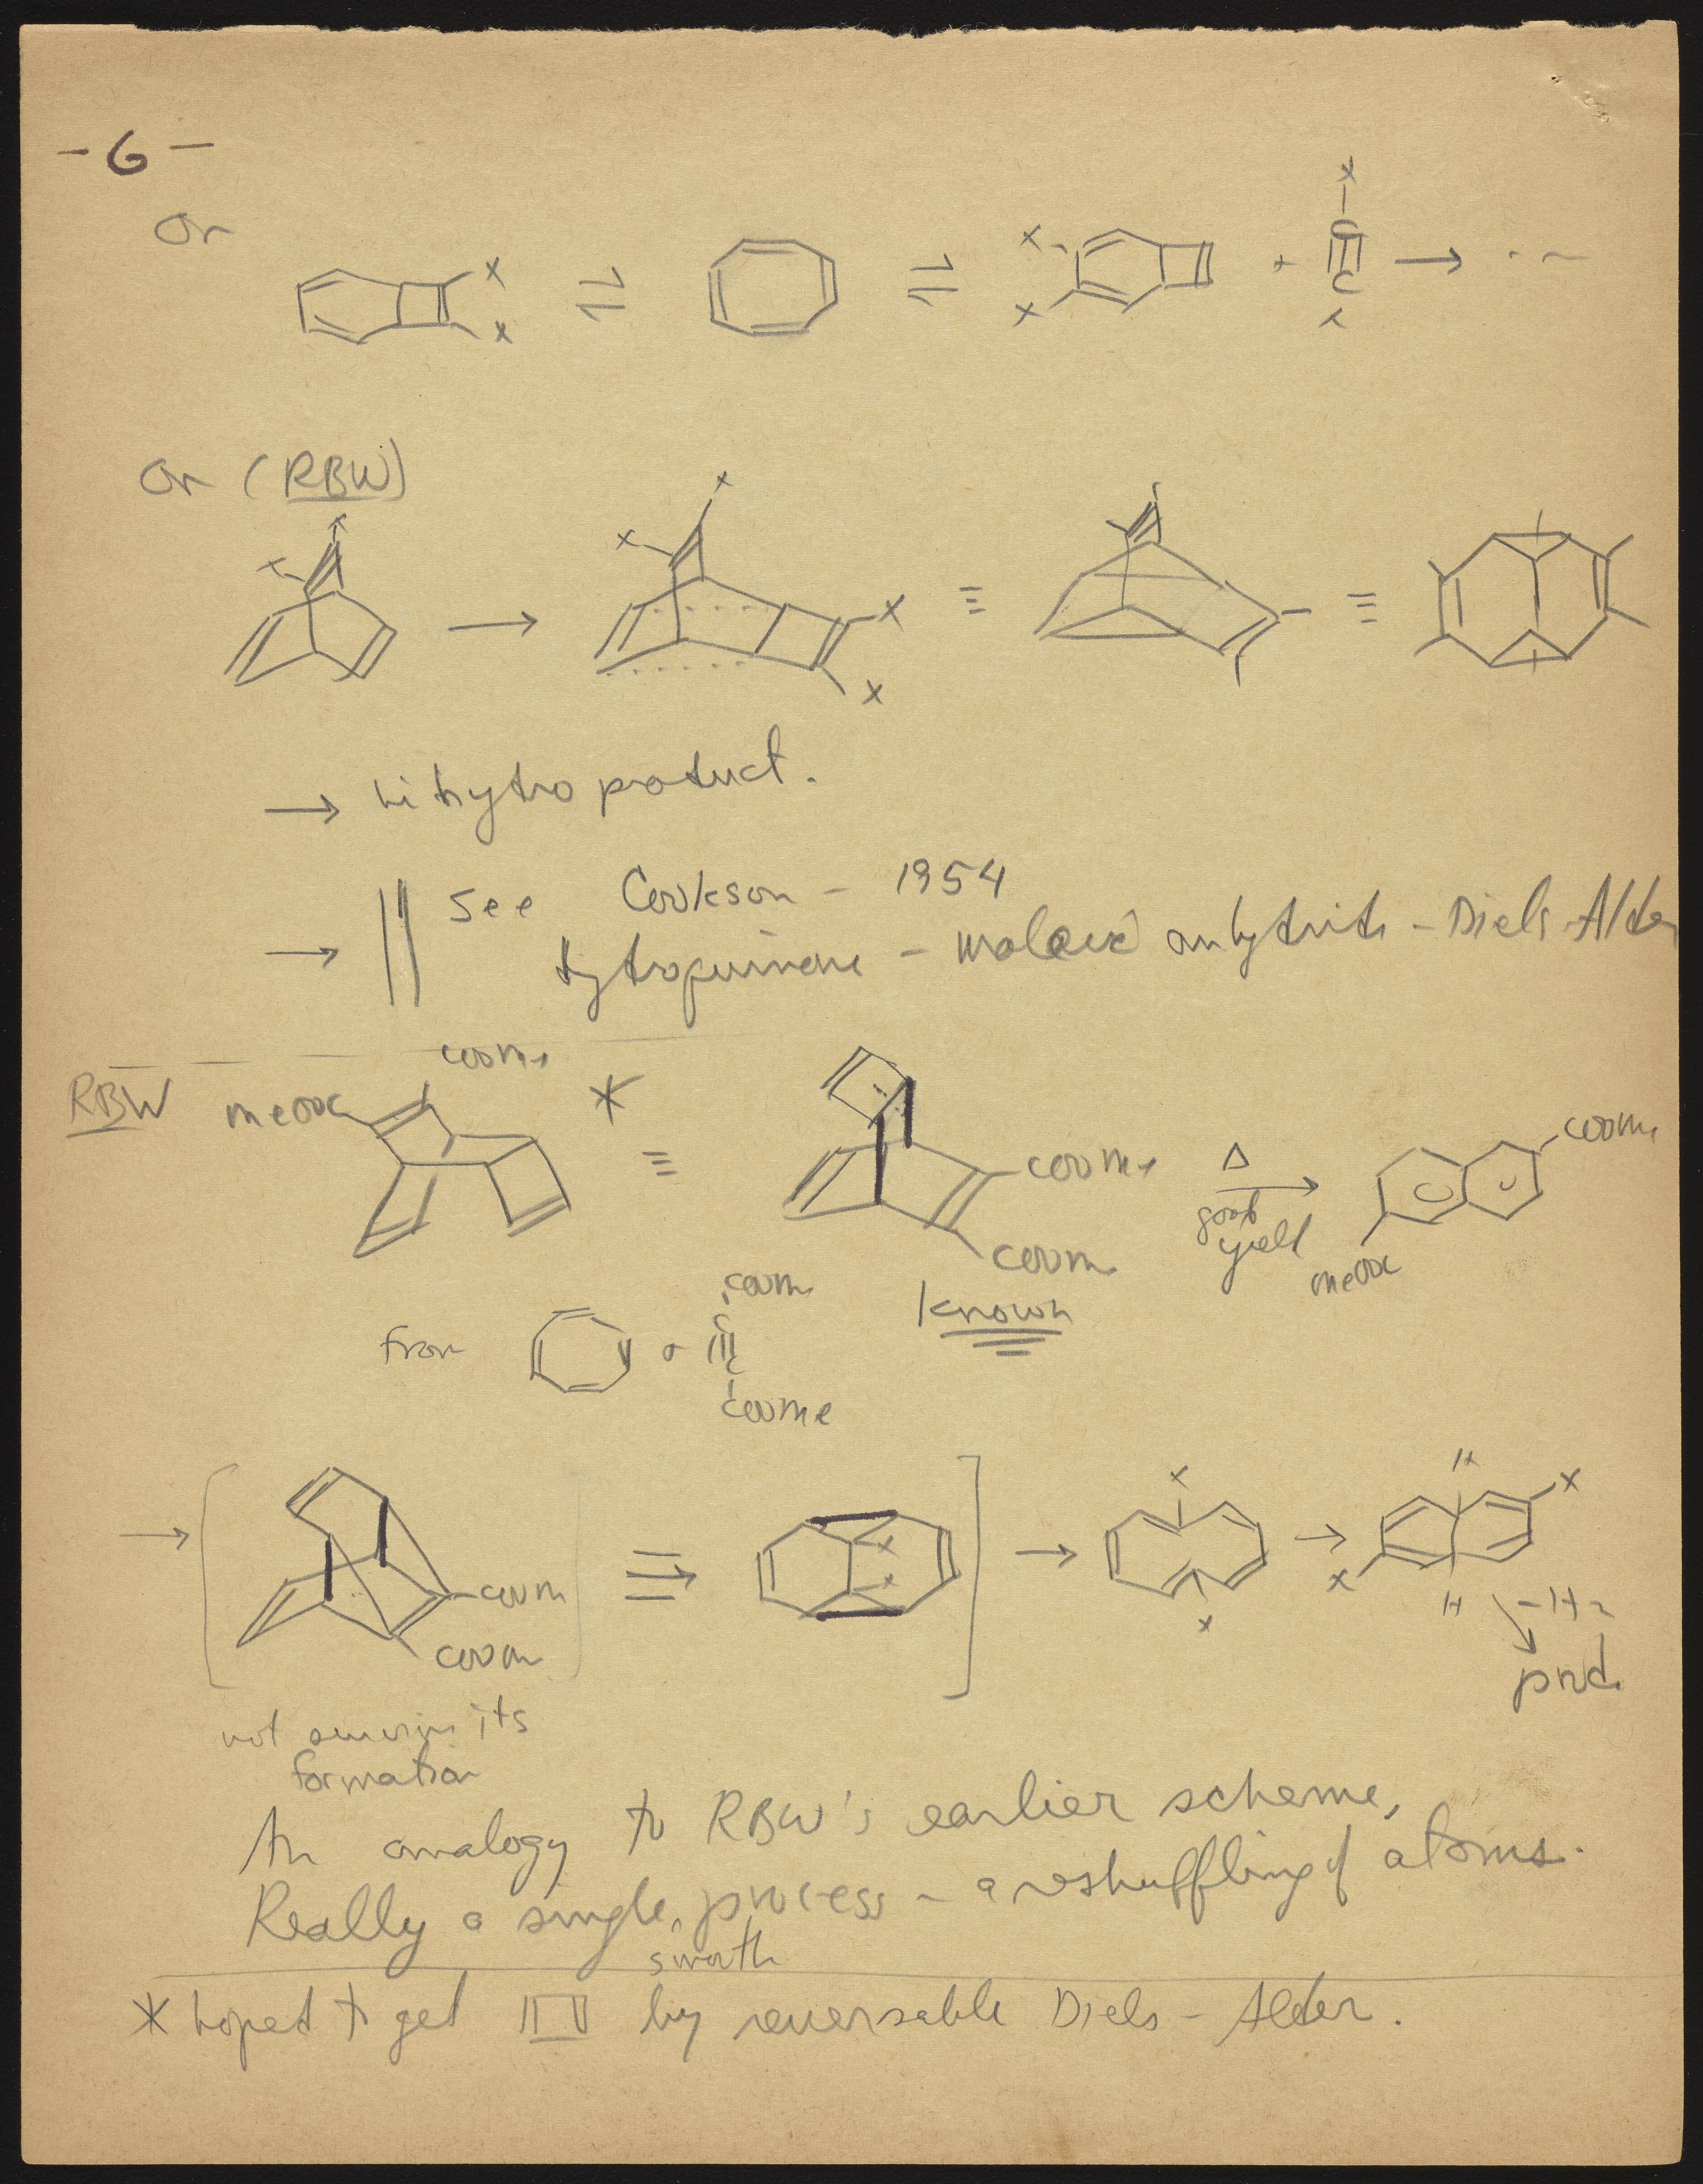 - 6 -
Or
x
x
x
x
+
x
C
C
x
Or (RBW)
x
x
x
x
x
x
→ dihydro product.
→ See Cookson - 1954
hydroquinone - maleic anhydride - Diels-Alder
RBW
MeOOC
COOMe
*
COOMe
COOMe
Known
Δ
good
yield
COOMe
MeOOC
from
+
COOMe
C
C
COOMe
COOMe
COOMe
x
x
x
x
H
x
x
H
-H2
prod.
not survive its
formation
An analogy to RBW's earlier scheme,
Really a single, smooth process - a reshuffling of atoms.
* hoped to get IV by reversable Diels-Alder.